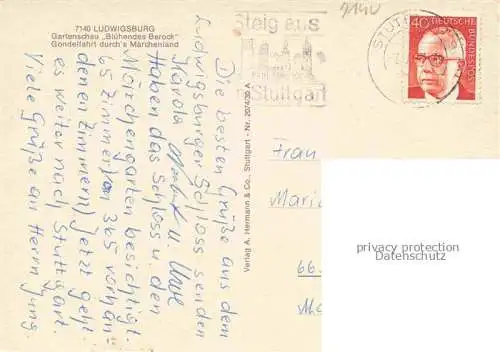 7140 LUDWIGSBURG
Gartenschau „Blühendes Barock"
Gondelfahrt durch's Märchenland
Die besten Grüße aus dem
Ludwigsburger Schloss senden
Karola u. Uwe
Haben das Schloss u. den
Märchengarten besichtigt.
65 Zimmer (von 365 vorhan-
denen Zimmern) jetzt geht
es weiter nach Stuttgart.
Viele Grüße an Herrn Jung.
Verlag A. Hermann & Co., Stuttgart - Nr. 20/4/39 A
Steig aus
in Stuttgart
7140
STUTTG
40
DEUTSCHE
BUNDESPOST
Frau
Mari
66
privacy protection
Datenschutz